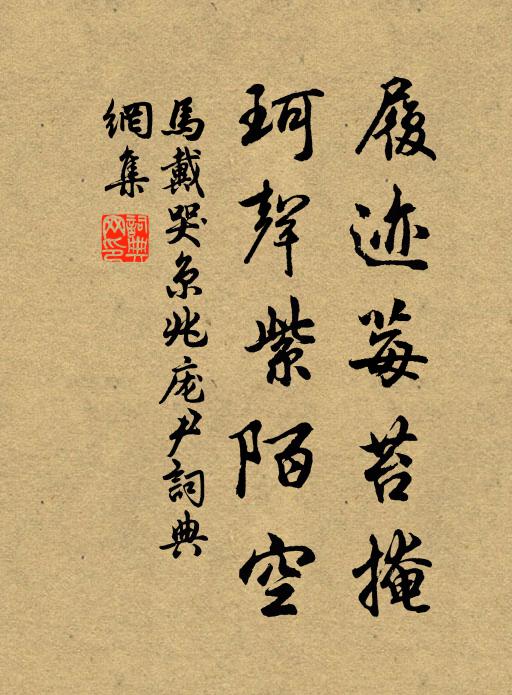 履迹莓苔掩
珂聲紫陌空
馬戴哭京兆庞尹詞典
網集
詞典網印